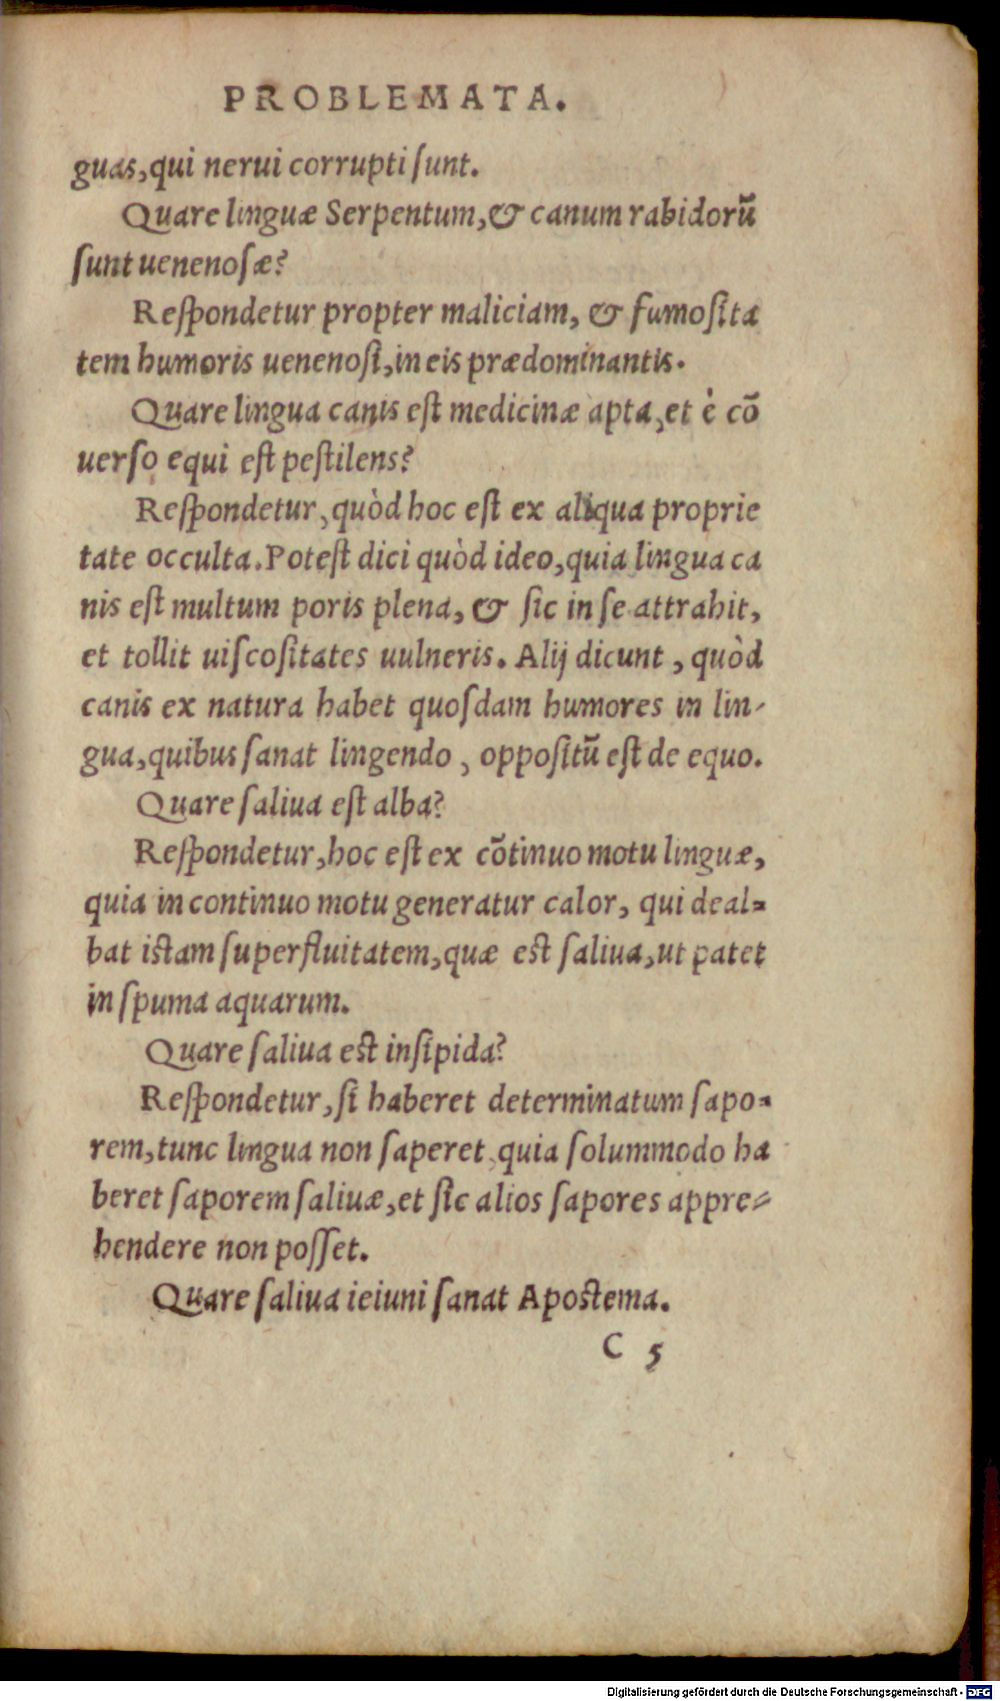 PROBLEMATA.
guas, qui nerui corrupti ſunt.
Quare linguæ Serpentum, & canum rabidorũ
ſunt uenenoſæ?
Reſpondetur propter maliciam, & fumoſita
tem humoris uenenoſi, in eis prædominantis.
Quare lingua canis eſt medicinæ apta, et è cõ
uerſo equi eſt peſtilens?
Reſpondetur, quòd hoc eſt ex aliqua proprie
tate occulta. Poteſt dici quòd ideo, quia lingua ca
nis eſt multum poris plena, & ſic in ſe attrahit,
et tollit uiſcoſitates uulneris. Alij dicunt, quòd
canis ex natura habet quoſdam humores in lin-
gua, quibus ſanat lingendo, oppoſitũ eſt de equo.
Quare ſaliua eſt alba?
Reſpondetur, hoc eſt ex cõtinuo motu linguæ,
quia in continuo motu generatur calor, qui deal-
bat iſtam ſuperfluitatem, quæ eſt ſaliua, ut patet
in ſpuma aquarum.
Quare ſaliua eſt inſipida?
Reſpondetur, ſi haberet determinatum ſapo-
rem, tunc lingua non ſaperet, quia ſolummodo ha
beret ſaporem ſaliuæ, et ſic alios ſapores appre-
hendere non poſſet.
Quare ſaliua ieiuni ſanat Apoſtema.
C 5
Digitalisierung gefördert durch die Deutsche Forschungsgemeinschaft - DFG